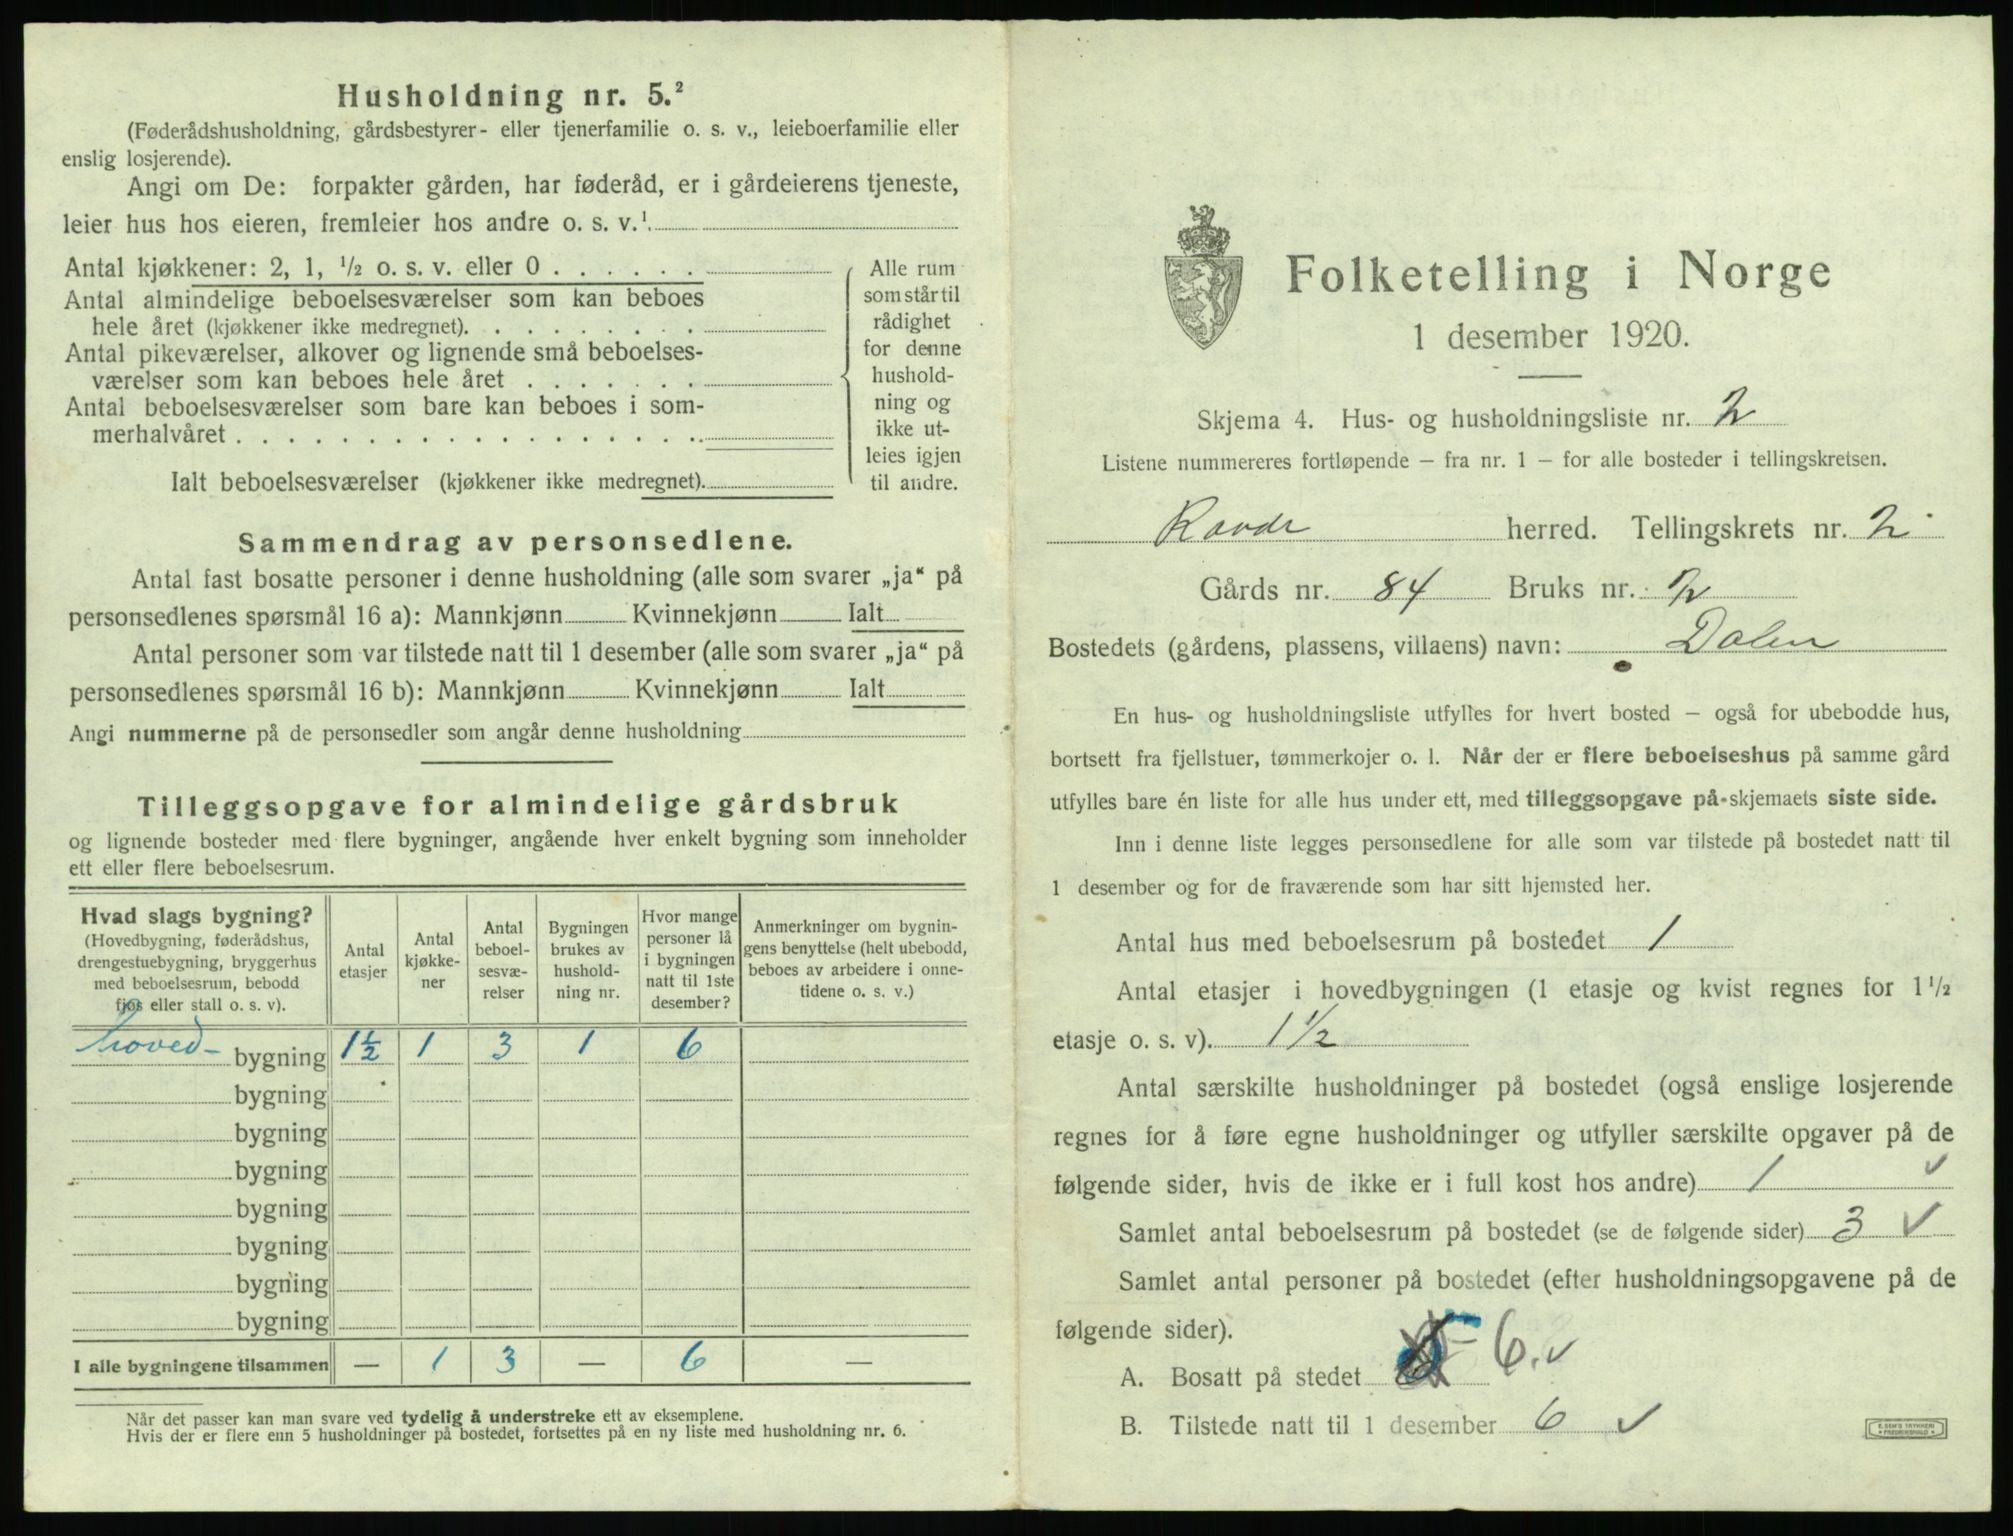 Husholdning nr. 5.²
(Føderådshusholdning, gårdsbestyrer- eller tjenerfamilie o. s. v., leieboerfamilie eller
enslig losjerende).
Angi om De: forpakter gården, har føderåd, er i gårdeierens tjeneste,
leier hus hos eieren, fremleier hos andre o. s. v.¹
Antal kjøkkener: 2, 1, ½ o. s. v. eller 0
Antal almindelige beboelsesværelser som kan beboes
hele året (kjøkkener ikke medregnet).
Antal pikeværelser, alkover og lignende små beboelses-
værelser som kan beboes hele året
Antal beboelsesværelser som bare kan beboes i som-
merhalvåret
Ialt beboelsesværelser (kjøkkener ikke medregnet).
Alle rum
som står til
rådighet
for denne
hushold-
ning og
ikke ut-
leies igjen
til andre.
Sammendrag av personsedlene.
Antal fast bosatte personer i denne husholdning (alle som svarer „ja“ på
personsedlenes spørsmål 16 a): Mannkjønn Kvinnekjønn Ialt
Antal personer som var tilstede natt til 1 desember (alle som svarer „ja“ på
personsedlenes spørsmål 16 b): Mannkjønn Kvinnekjønn Ialt
Angi nummerne på de personsedler som angår denne husholdning
Tilleggsopgave for almindelige gårdsbruk
og lignende bosteder med flere bygninger, angående hver enkelt bygning som inneholder
ett eller flere beboelsesrum.
Hvad slags bygning?
(Hovedbygning, føderådshus,
drengestuebygning, bryggerhus
med beboelsesrum, bebodd
fjøs eller stall o. s. v).
Antal
etasjer
Antal
kjøkke-
ner
Antal
beboel-
sesvæ-
relser
Bygningen
brukes av
hushold-
ning nr.
Hvor mange
personer lå
i bygningen
natt til 1ste
desember?
Anmerkninger om bygnin-
gens benyttelse (helt ubebodd,
beboes av arbeidere i onne-
tidene o. s. v.)
hoved- bygning 1½ 1 3 1 6
bygning
bygning
bygning
bygning
bygning
bygning
bygning
I alle bygningene tilsammen — 1 3 — 6 —
Når det passer kan man svare ved tydelig å understreke ett av eksemplene.
Hvis der er flere enn 5 husholdninger på bostedet, fortsettes på en ny liste med husholdning nr. 6.
Folketelling i Norge
1 desember 1920.
Skjema 4. Hus- og husholdningsliste nr. 2
Listene nummereres fortløpende – fra nr. 1 – for alle bosteder i tellingskretsen.
Raade herred. Tellingskrets nr. 2
Gårds nr. 84 Bruks nr. 2
Bostedets (gårdens, plassens, villaens) navn: Dalen
En hus- og husholdningsliste utfylles for hvert bosted – også for ubebodde hus,
bortsett fra fjellstuer, tømmerkojer o. l. Når der er flere beboelseshus på samme gård
utfylles bare én liste for alle hus under ett, med tilleggsopgave på skjemaets siste side.
Inn i denne liste legges personsedlene for alle som var tilstede på bostedet natt til
1 desember og for de fraværende som har sitt hjemsted her.
Antal hus med beboelsesrum på bostedet 1
Antal etasjer i hovedbygningen (1 etasje og kvist regnes for 1½
etasje o. s. v). 1½
Antal særskilte husholdninger på bostedet (også enslige losjerende
regnes for å føre egne husholdninger og utfyller særskilte opgaver på de
følgende sider, hvis de ikke er i full kost hos andre) 1 ✓
Samlet antal beboelsesrum på bostedet (se de følgende sider) 3 ✓
Samlet antal personer på bostedet (efter husholdningsopgavene på de
følgende sider).
A. Bosatt på stedet 6. ✓
B. Tilstede natt til 1 desember 6 ✓
E. SEM'S TRYKKERI
FREDRIKSHALD